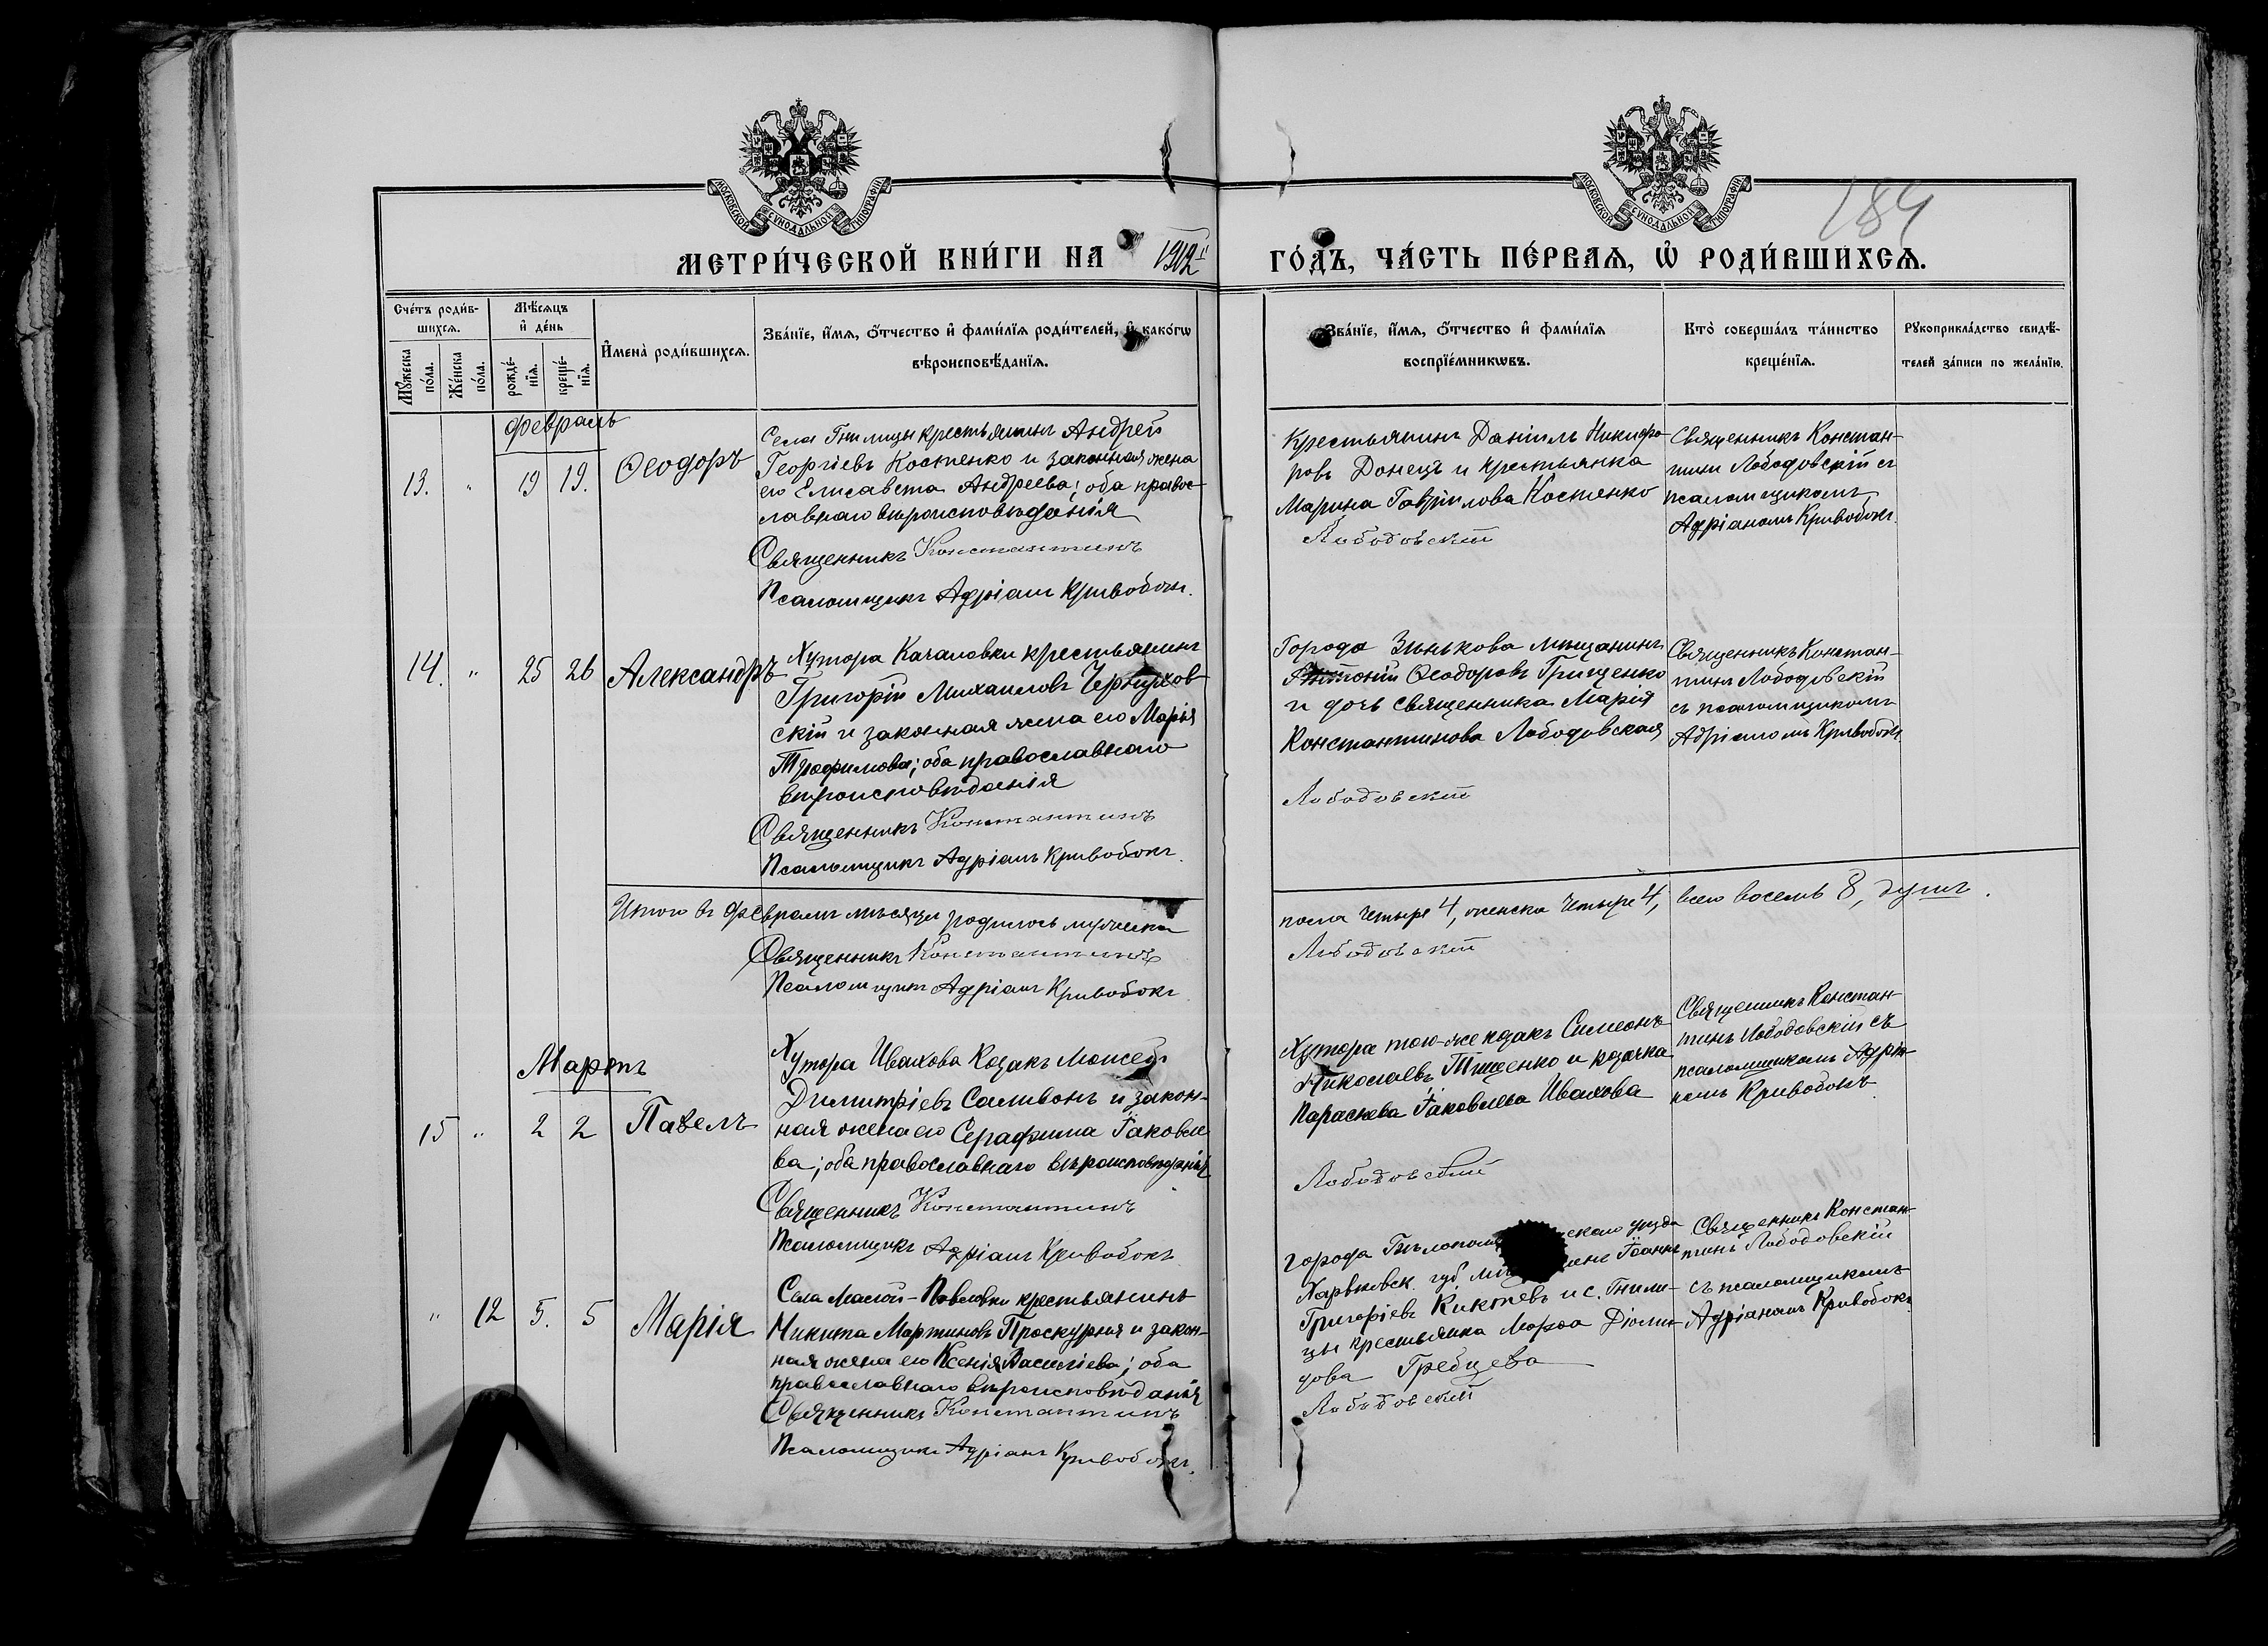 МОСКОВСКОЙ СѴНОДАЛЬНОЙ ТИПОГРАФІИ
МОСКОВСКОЙ СѴНОДАЛЬНОЙ ТИПОГРАФІИ
184
МЕТРИ́ЧЕСКОЙ КНИ́ГИ НА 1912 ГО́ДЪ, ЧА́СТЬ ПЕ́РВАѦ, Ѡ РОДИ́ВШИХСѦ.
Сче́тъ роди́в-
шихсѧ.
Мꙋ́жеска
по́ла.
Же́нска
по́ла.
Мѣ́сѧцъ
и де́нь
рожде́-
нїѧ.
креще́-
нїѧ.
И҆мена̀ роди́вшихсѧ.
Зва́нїе, и҆́мѧ, ѻ҆́тчество и҆ фами́лїѧ роди́телей, и҆ како́гѡ
вѣроисповѣ́данїѧ.
Зва́нїе, и҆́мѧ, ѻ҆́тчество и҆ фами́лїѧ
воспрїе́мникѡвъ.
Кто̀ соверша́лъ та́инство
креще́нїѧ.
Рꙋкоприкла́дство свидѣ́-
телей за́писи по жела́нїю.
Февраль
13. " 19 19. Ѳеодоръ
Села Гнилицы крестьянинъ Андрей
Георгіевъ Костенко и законная жена
его Елисавета Андреева; оба правос-
лавнаго вѣроисповѣданія
Священникъ Константинъ
Псаломщикъ Адріанъ Кривобокъ.
Крестьянинъ Даніилъ Никифо-
ровъ Донецъ и крестьянка
Марина Гавріилова Костенко
Лободовскій
Священникъ Констан-
тинъ Лободовскій съ
псаломщикомъ
Адріаномъ Кривобокъ.
14. " 25 26 Александръ
Хутора Качаловки крестьянинъ
Григорій Михаиловъ Чернухов-
скій и законная жена его Марія
Трофимова; оба православнаго
вѣроисповѣданія
Священникъ Константинъ
Псаломщикъ Адріанъ Кривобокъ.
Города Зинькова мѣщанинъ
Антоній Ѳеодоровъ Грищенко
и дочь священника Марія
Константинова Лободовская
Лободовскій
Священникъ Констан-
тинъ Лободовскій
съ псаломщикомъ
Адріаномъ Кривобокъ
Итого въ февралѣ мѣсяцѣ родилось мужеска
пола четыре 4, женска четыре 4, всего восемь 8, душъ.
Священникъ Константинъ
Лободовскій
Псаломщикъ Адріанъ Кривобокъ
Мартъ
15 " 2 2 Павелъ
Хутора Ивахова Козакъ Моисей
Димитріевъ Саливонъ и закон-
ная жена его Серафима Іаковле-
ва; оба православнаго вѣроисповѣданія
Священникъ Константинъ
Псаломщикъ Адріанъ Кривобокъ
Хутора того-же козакъ Симеонъ
Николаевъ Тищенко и козачка
Параскева Іаковлева Ивахова
Лободовскій
Священникъ Констан-
тинъ Лободовскій съ
псаломщикомъ Адріа-
номъ Кривобокъ
" 12 5. 5 Марія
Села Малой-Павловки крестьянинъ
Никита Мартиновъ Проскурня и закон-
ная жена его Ксенія Василіева; оба
православнаго вѣроисповѣданія
Священникъ Константинъ
Псаломщикъ Адріанъ Кривобокъ.
Города скаго уѣзда
Харьковск. губ. Іоаннъ
Григоріевъ Киктевъ и с. Гнили-
цы крестьянка Марѳа Діоми-
дова Гребцева
Лободовскій
Священникъ Констан-
тинъ Лободовскій
съ псаломщикомъ
Адріаномъ Кривобокъ